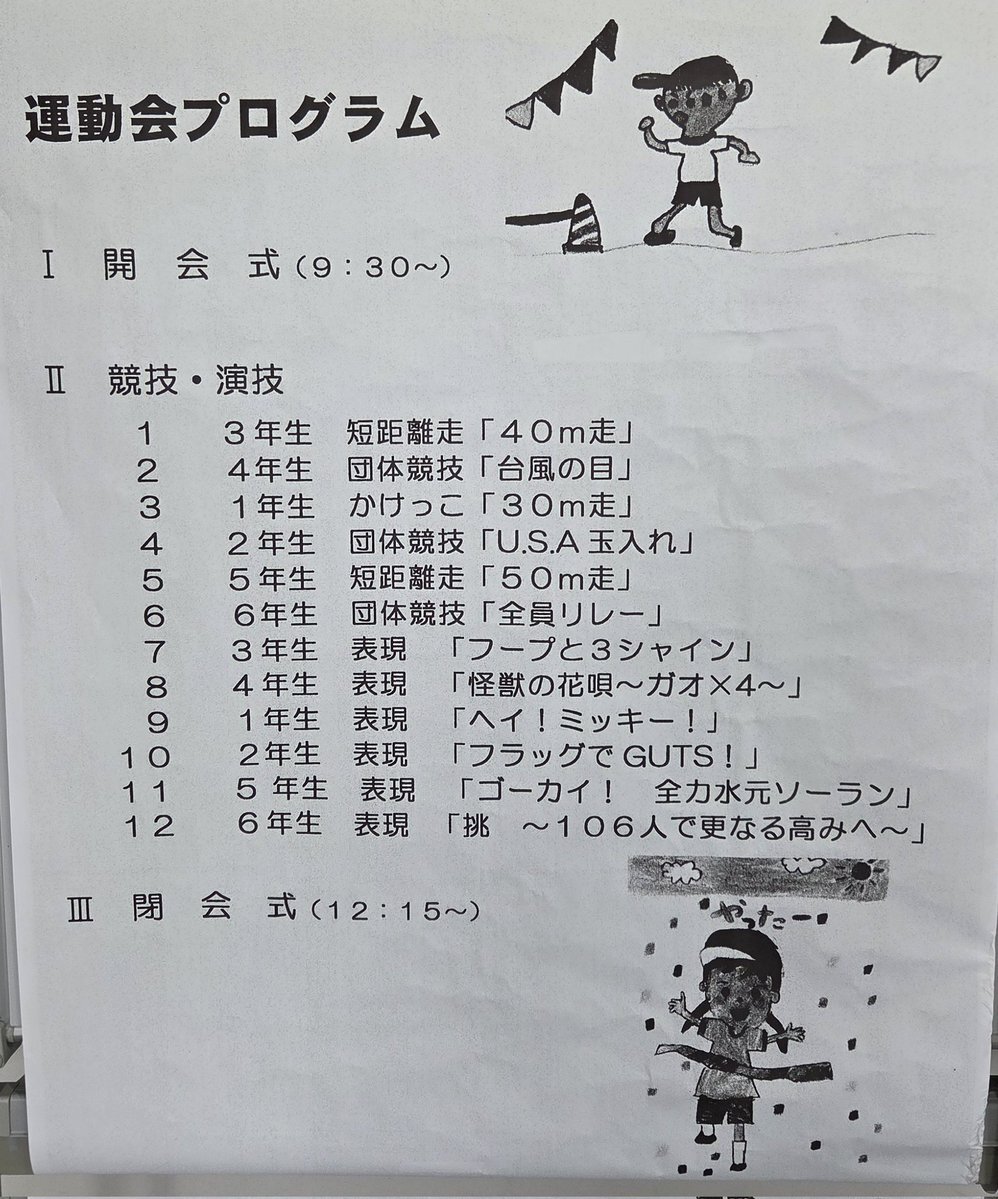 運動会プログラム
Ⅰ 開 会 式（９：３０～）
Ⅱ 競技・演技
１ ３年生 短距離走「４０ｍ走」
２ ４年生 団体競技「台風の目」
３ １年生 かけっこ「３０ｍ走」
４ ２年生 団体競技「U.S.A 玉入れ」
５ ５年生 短距離走「５０ｍ走」
６ ６年生 団体競技「全員リレー」
７ ３年生 表現 「フープと３シャイン」
８ ４年生 表現 「怪獣の花唄～ガオ×4～」
９ １年生 表現 「ヘイ！ミッキー！」
１０ ２年生 表現 「フラッグで GUTS！」
１１ ５年生 表現 「ゴーカイ！ 全力水元ソーラン」
１２ ６年生 表現 「挑 ～１０６人で更なる高みへ～」
Ⅲ 閉 会 式（１２：１５～）
やったー